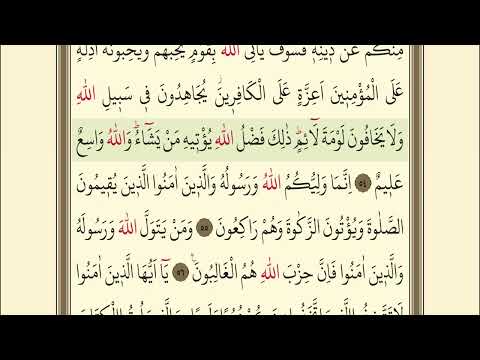 مِنْكُمْ عَنْ دِينِهِ فَسَوْفَ يَأْتِى اللّٰهُ بِقَوْمٍ يُحِبُّهُمْ وَيُحِبُّونَهُٓ اَذِلَّةٍ
عَلَى الْمُؤْمِنِينَ اَعِزَّةٍ عَلَى الْكَافِرِينَۘ يُجَاهِدُونَ فِى سَبِيلِ اللّٰهِ
وَلَا يَخَافُونَ لَوْمَةَ لَٓائِمٍۜ ذٰلِكَ فَضْلُ اللّٰهِ يُؤْتِيهِ مَنْ يَشَٓاءُۜ وَاللّٰهُ وَاسِعٌ
عَلِيمٌ ٥٤ اِنَّمَا وَلِيُّكُمُ اللّٰهُ وَرَسُولُهُ وَالَّذِينَ اٰمَنُوا الَّذِينَ يُقِيمُونَ
الصَّلٰوةَ وَيُؤْتُونَ الزَّكٰوةَ وَهُمْ رَاكِعُونَ ٥٥ وَمَنْ يَتَوَلَّ اللّٰهَ وَرَسُولَهُ
وَالَّذِينَ اٰمَنُوا فَاِنَّ حِزْبَ اللّٰهِ هُمُ الْغَالِبُونَ۟ ٥٦ يَٓا اَيُّهَا الَّذِينَ اٰمَنُوا